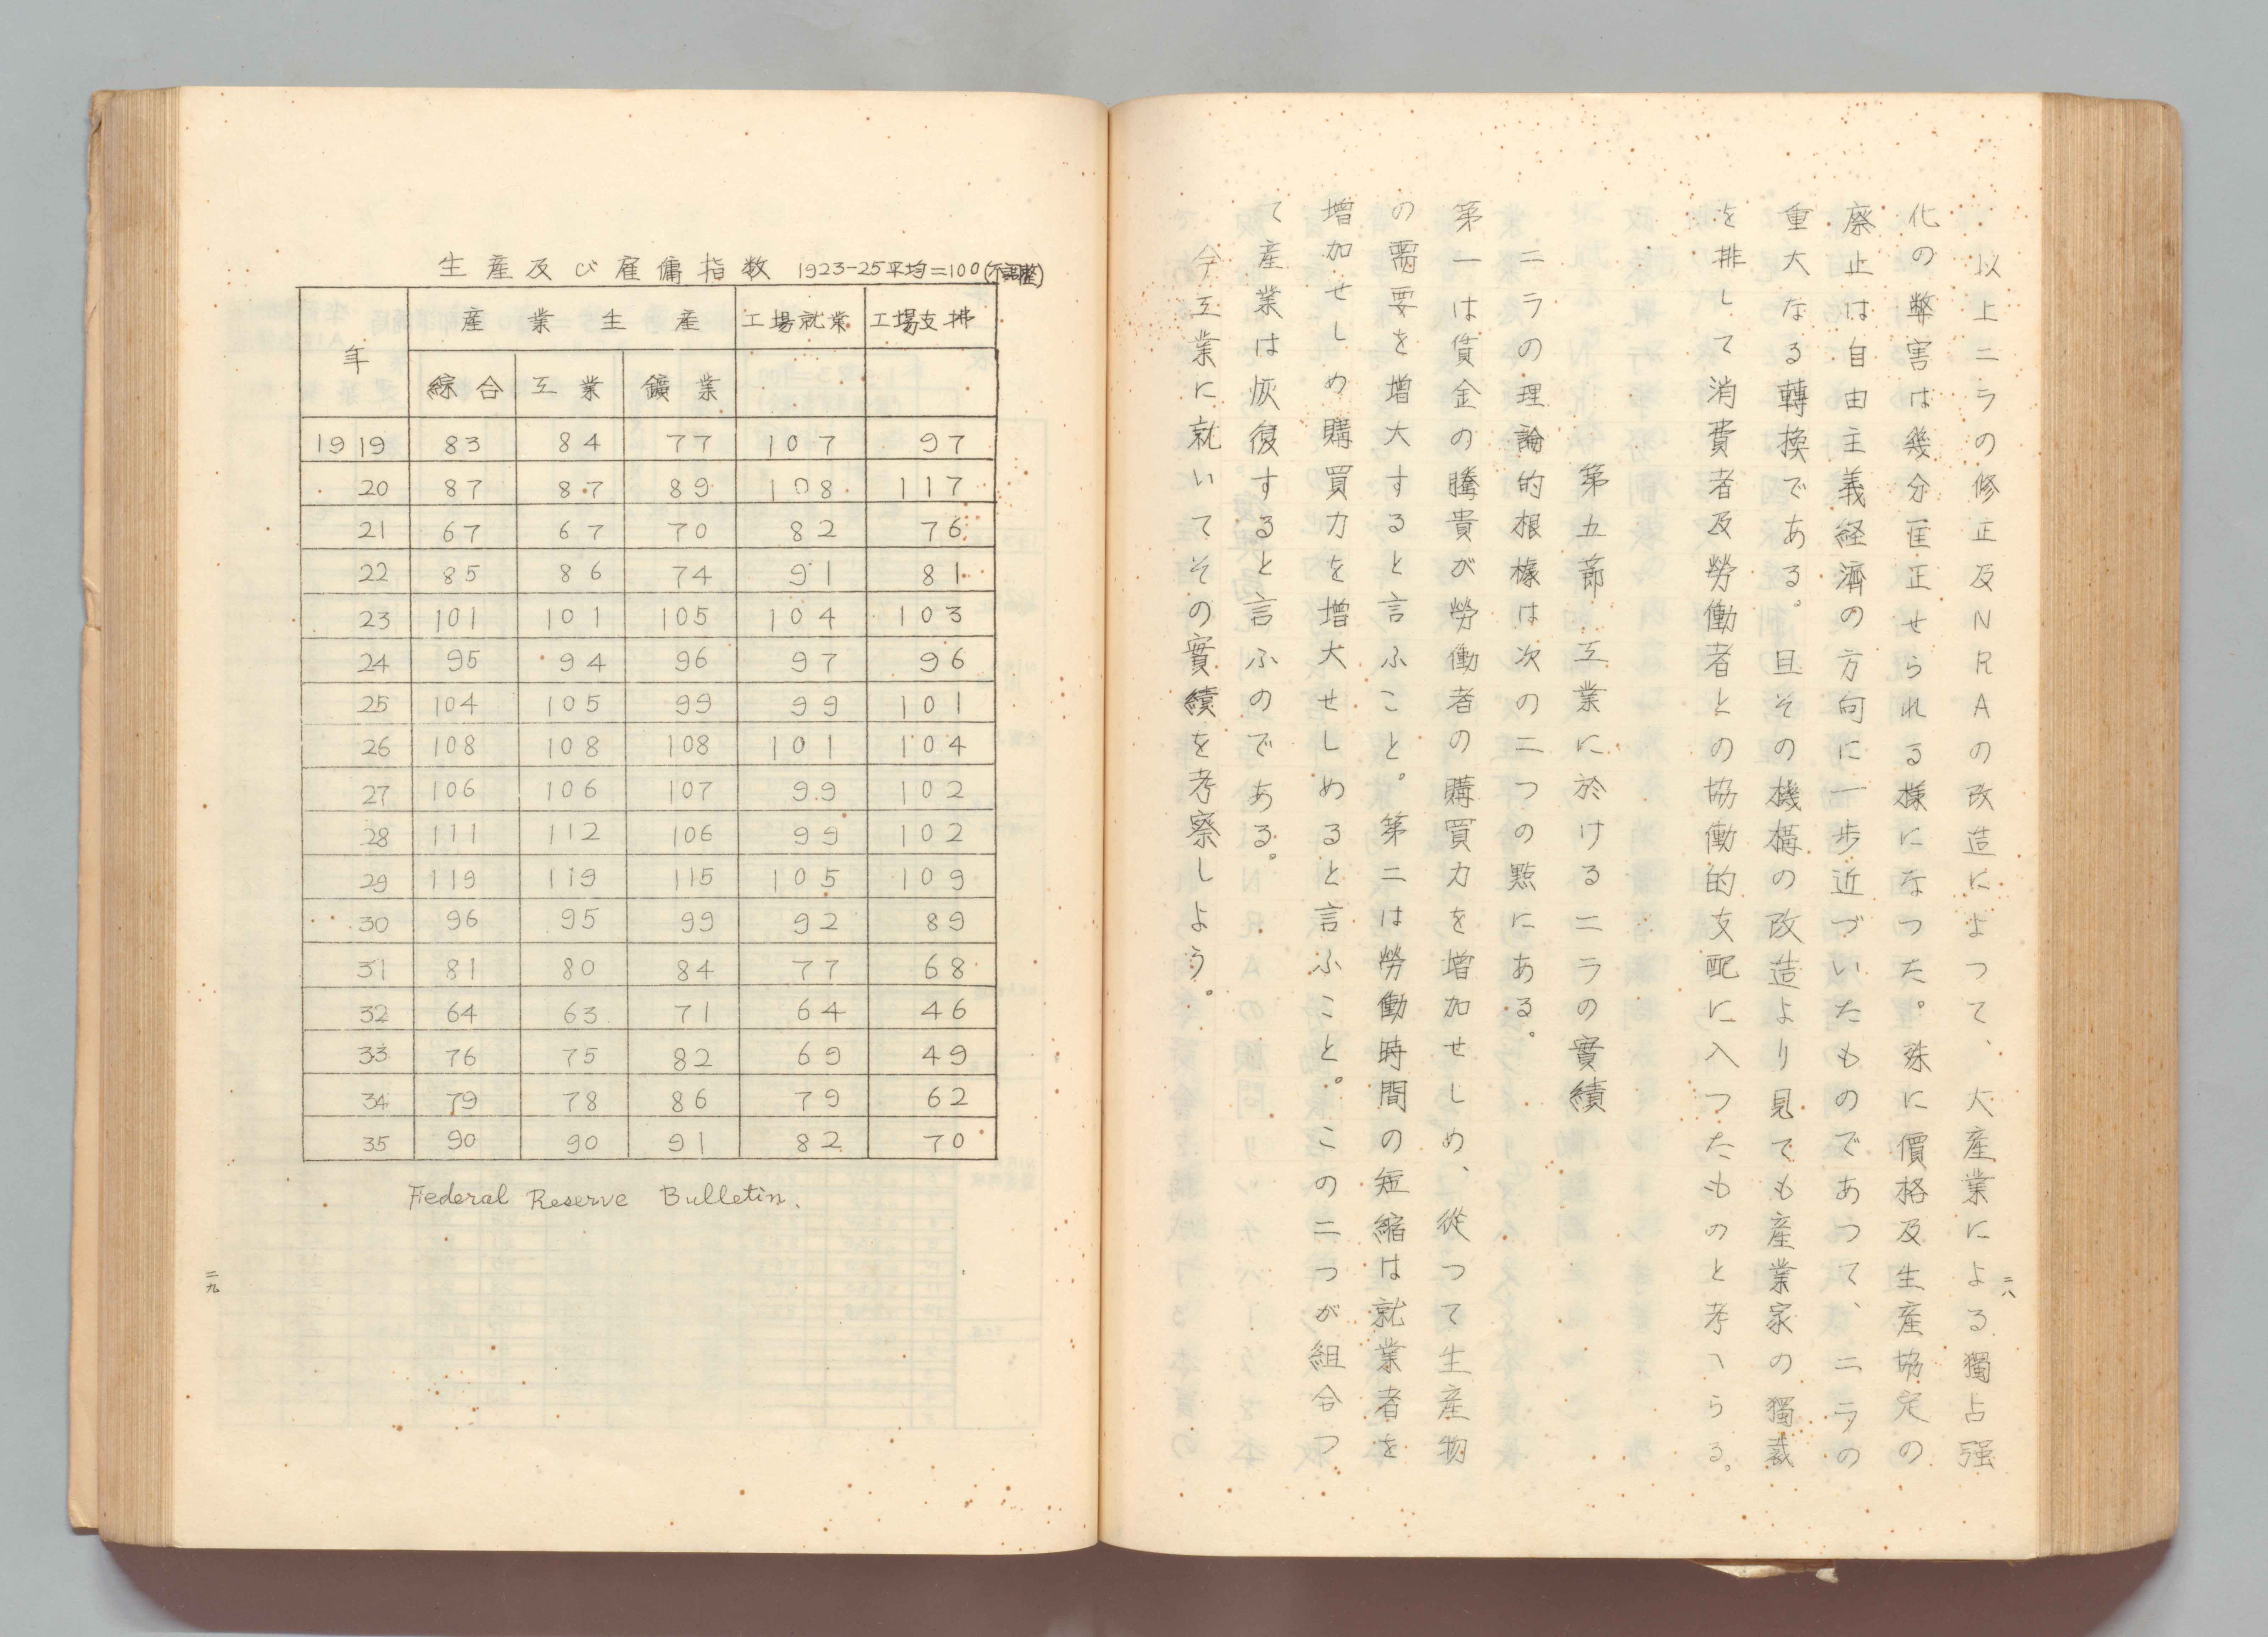 以上ニラの修正及NRAの改造によつて、大産業による獨占强
化の弊害は幾分匡正せられる様になつた。殊に價格及生産協定の
廃止は自由主義経濟の方向に一歩近づいたものであつて、ニラの
重大なる轉換である。且その機構の改造より見でも産業家の獨裁
を排して消費者及勞働者との協働的支配に入つたものと考へらる。
第五節 工業に於けるニラの實績
ニラの理論的根據は次の二つの點にある。
第一は賃金の騰貴が勞働者の購買力を増加せしめ、從つて生産物
の需要を増大すると言ふこと。第二は勞働時間の短縮は就業者を
増加せしめ購買力を増大せしめると言ふこと。この二つが組合つ
て産業は恢復すると言ふのである。
今工業に就いてその實績を考察しよう。
二八
生産及び雇傭指数 1923-25平均=100(不調整)
年 産業生産 工場就業 工場支拂
綜合 工業 鑛業
1919 83 84 77 107 97
20 87 87 89 108 117
21 67 67 70 82 76
22 85 86 74 91 81
23 101 101 105 104 103
24 95 94 96 97 96
25 104 105 99 99 101
26 108 108 108 101 104
27 106 106 107 99 102
28 111 112 106 99 102
29 119 119 115 105 109
30 96 95 99 92 89
31 81 80 84 77 68
32 64 63 71 64 46
33 76 75 82 69 49
34 79 78 86 79 62
35 90 90 91 82 70
Federal Reserve Bulletin.
二九